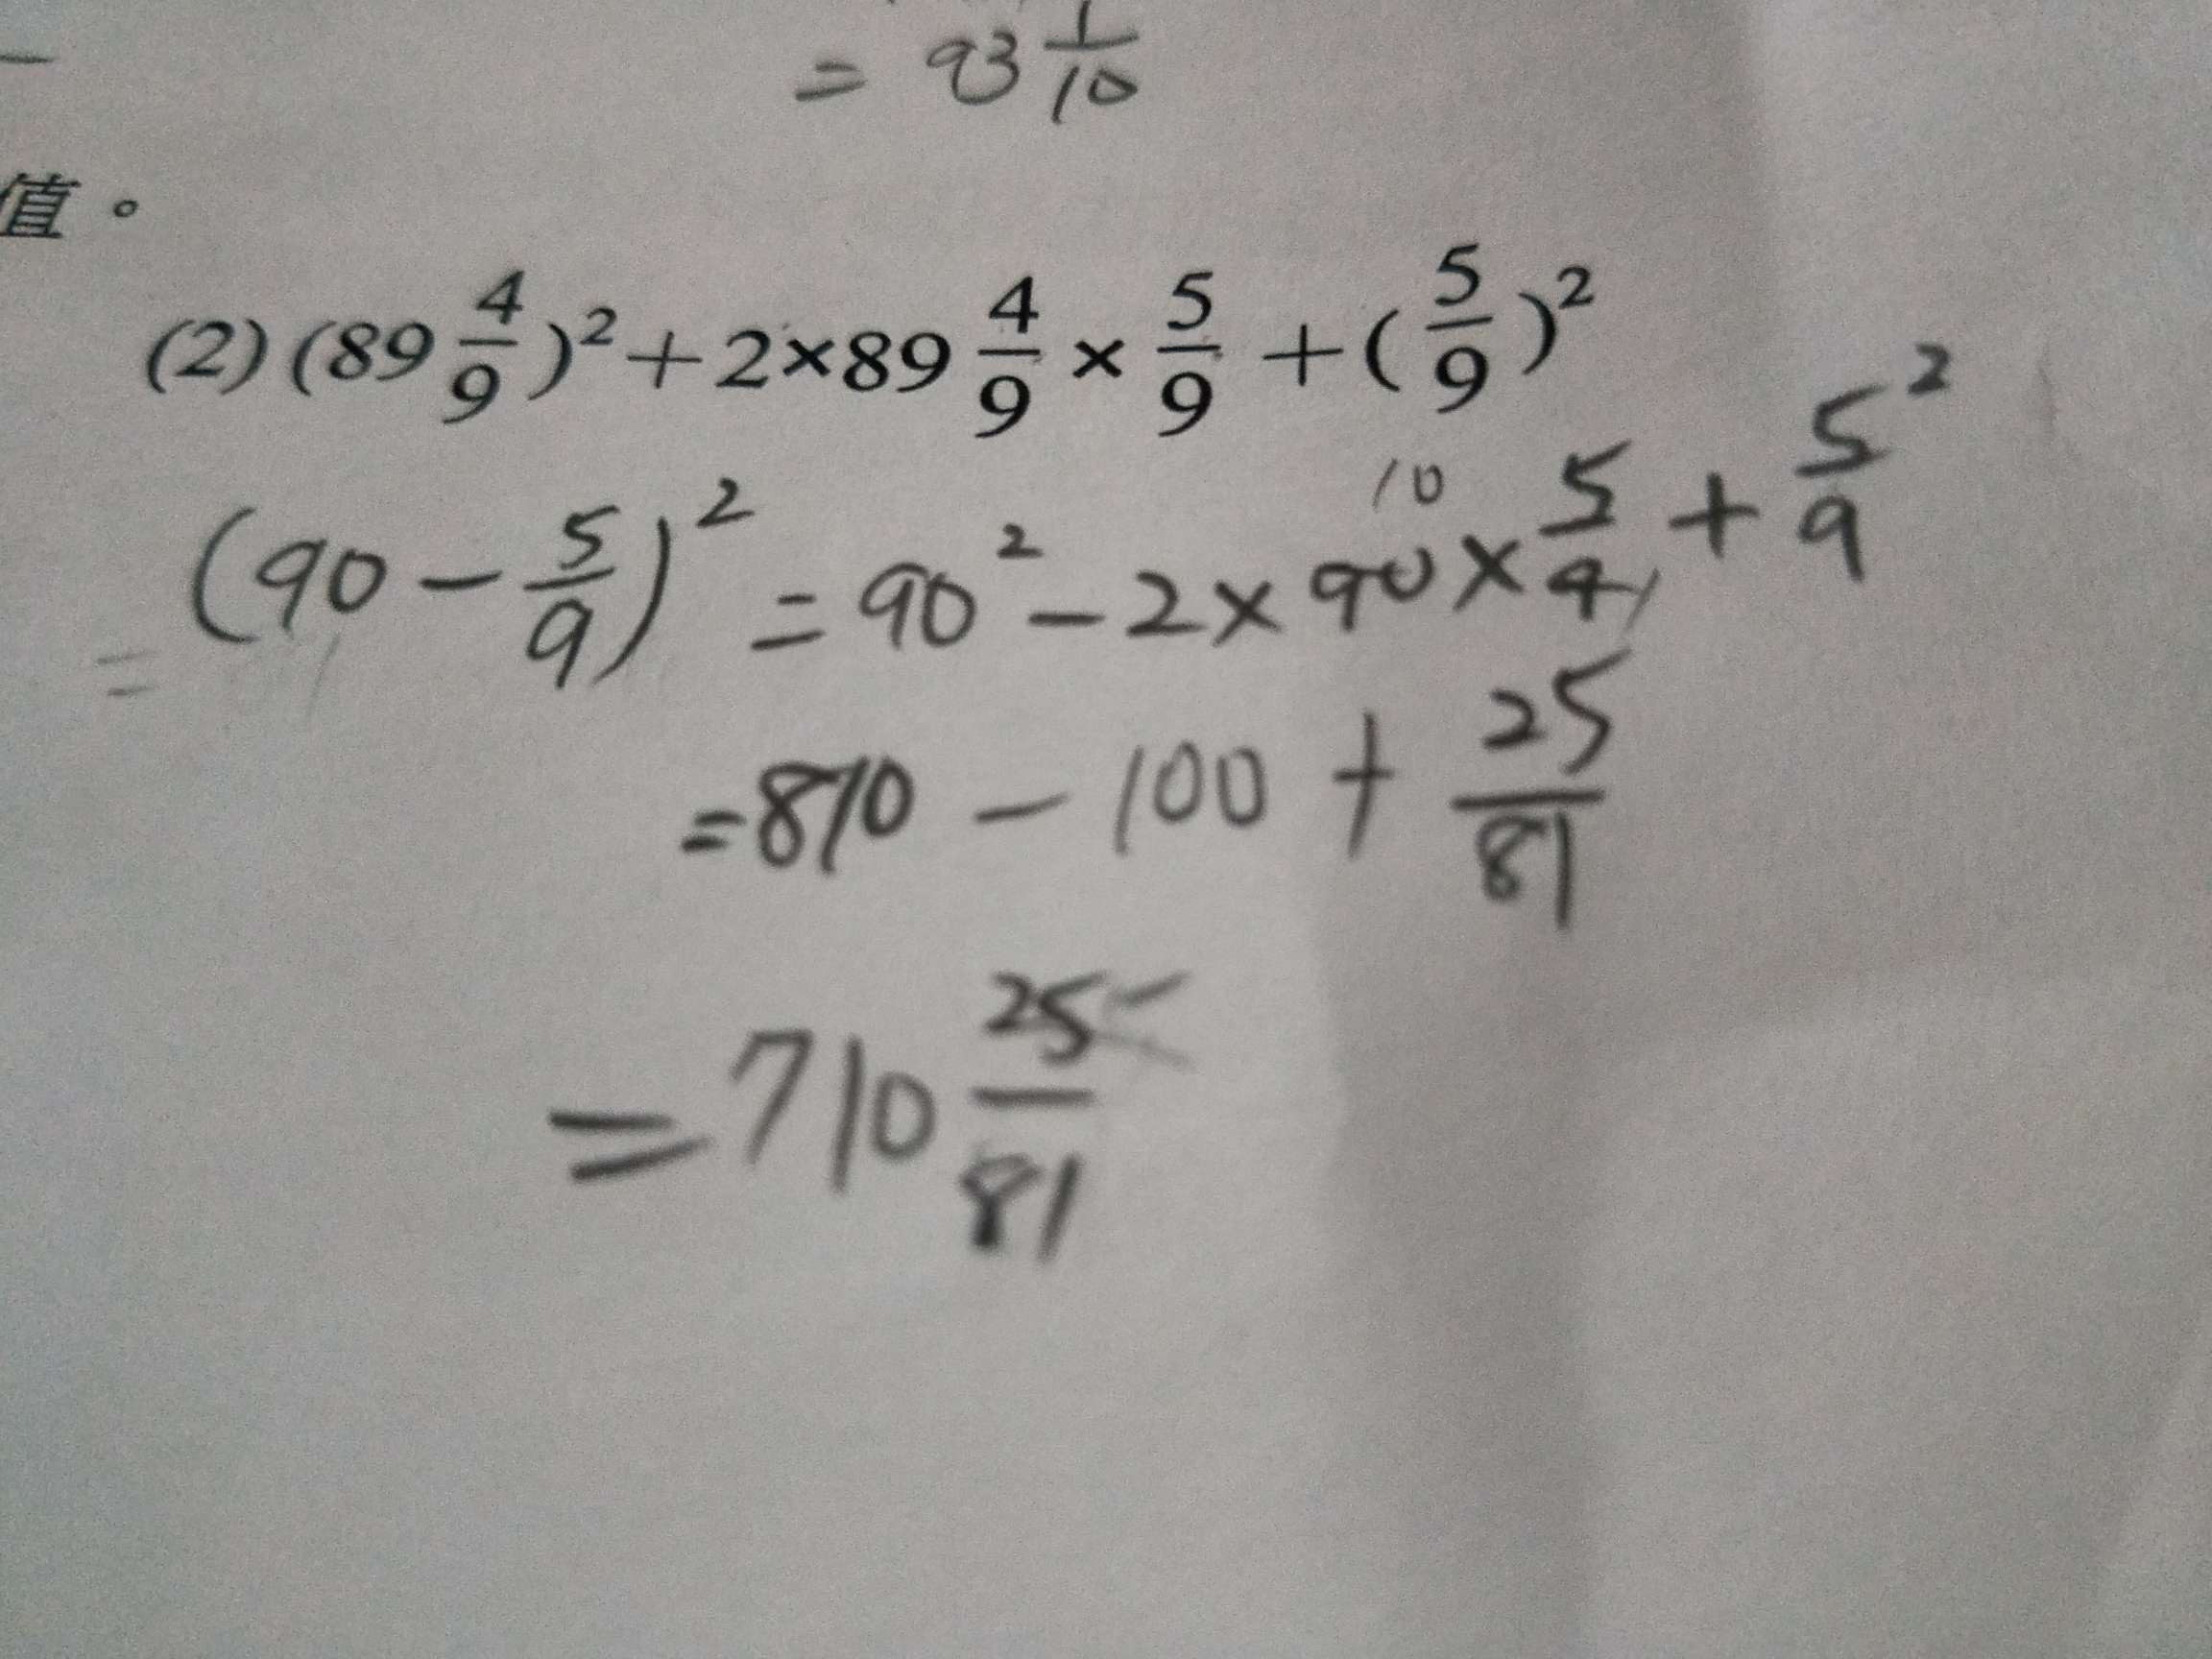 = 93 1/10
值。
(2) (89 4/9)² + 2×89 4/9 × 5/9 + (5/9)²
= (90 − 5/9)² = 90² − 2 × 90 × 5/9 + 5/9²
10
1
= 810 − 100 + 25/81
= 710 25/81